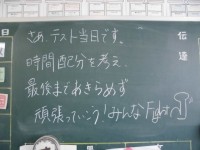 さぁ、テスト当日です。
時間配分を考え、
最後まであきらめず
頑張っていこう!みんなFight
伝達
日